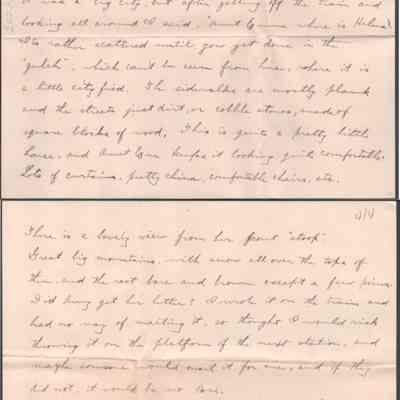 was a big city, but after getting off the train and
looking all around I said, "Aunt Emma where is Helena?"
Its rather scattered until you get down in the
"gulch", which can't be seen from here, where it is
a little cityfied. The sidewalks are mostly plank
and the streets just dirt, or cobble stones, made of
square blocks of wood, This is quite a pretty little
house, and Aunt Em keeps it looking quite comfortable.
Lots of curtains, pretty china, comfortable chairs, etc.
There is a lovely view from her front "stoop".
Great big mountains, with snow all over the tops of
them, and the rest bare and brown except a few pines.
Did get her letter? I wrote it on the train and
had no way of mailing it, so thought I would risk
throwing it on the platform of the next station, and
maybe someone would mail it for me, and if they
did not, it would be no loss.